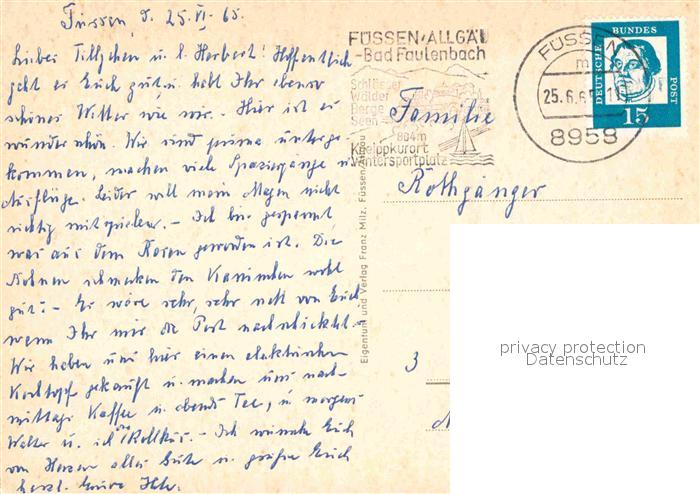 Füssen, d. 25. VI. 65.
Liebes Tillychen u. l. Herbert! Hoffentlich
geht es Euch gut u. habt Ihr ebenso
schönes Wetter wie wir. - Hier ist es
wunderschön. Wir sind prima unterge-
kommen, machen viele Spaziergänge u.
Ausflüge. Leider will mein Magen nicht
richtig mitspielen. - Ich bin gespannt
was aus dem Rasen geworden ist. Die
Bohnen schmecken den Kaninchen wohl
gut. - Es wäre sehr, sehr nett von Euch
wenn Ihr mir die Post nachschickt. -
Wir haben uns hier einen elektrischen
Kochtopf gekauft u. machen uns nach-
mittags Kaffee u. abends Tee, u. morgens
Walter u. ich
- Ich wünsche Euch
von Herzen alles Gute u. grüße Euch
herzl. Eure Ilse.
FÜSSEN/ALLGÄU
-Bad Faulenbach
Schlösser
Wälder
Berge
Seen
804m
Kneippkurort
Wintersportplatz
FÜSSEN
m
25.6.6
8958
DEUTSCHE BUNDESPOST
15
Familie
Röthgänger
Eigentum und Verlag Franz Milz, Füssen/Allgäu
3
privacy protection
Datenschutz